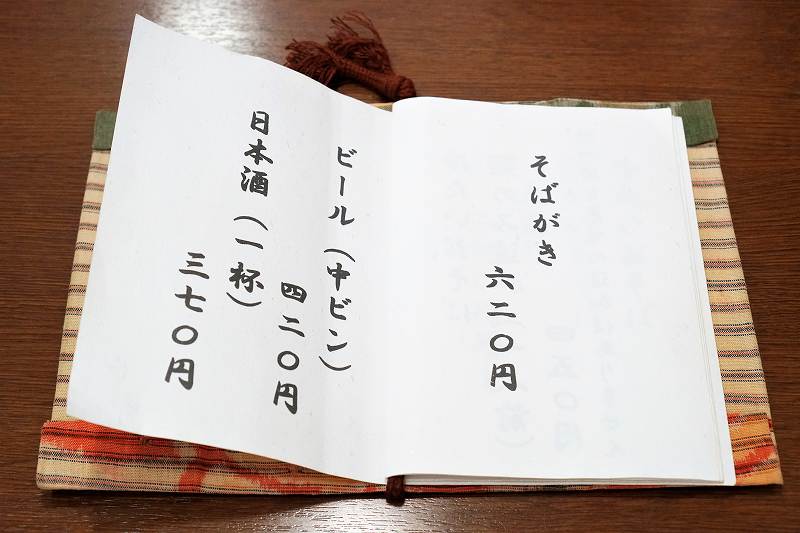 そばがき
六二〇円
ビール（中ビン）
四二〇円
日本酒（一杯）
三七〇円